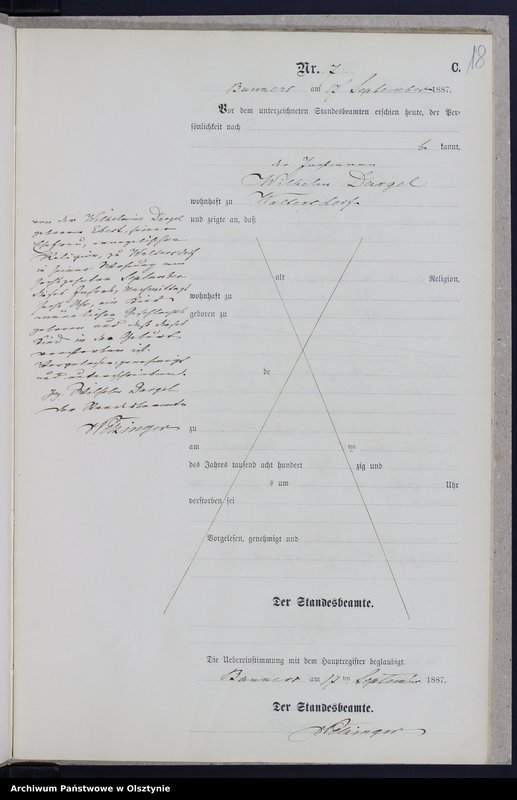 18
Nr. 17 C.
Banners am 17 September 1887.
Vor dem unterzeichneten Standesbeamten erschien heute, der Per-
sönlichkeit nach
be kannt,
der Instmann
Wilhelm Dargel
wohnhaft zu Waltersdorf
und zeigte an, daß
von der Wilhelmine Dargel
geborene Ebert, seiner
Ehefrau, evangelischer
Religion, zu Waltersdorf
in seiner Wohnung am
September
dieses Jahres, Nachmittags
Uhr, ein Kind
männlichen Geschlechts
geboren und daß dieses
Kind in der Geburt
verstorben ist.
Vorgelesen, genehmigt
und unterschrieben.
gez. Wilhelm Dargel
Der Standesbeamte
alt Religion,
wohnhaft zu
geboren zu
de
zu
am ten
des Jahres tausend acht hundert zig und
s um Uhr
verstorben sei
Vorgelesen, genehmigt und
Der Standesbeamte.
Die Uebereinstimmung mit dem Hauptregister beglaubigt.
Banners am 17 ten September 1887.
Der Standesbeamte.
Archiwum Państwowe w Olsztynie